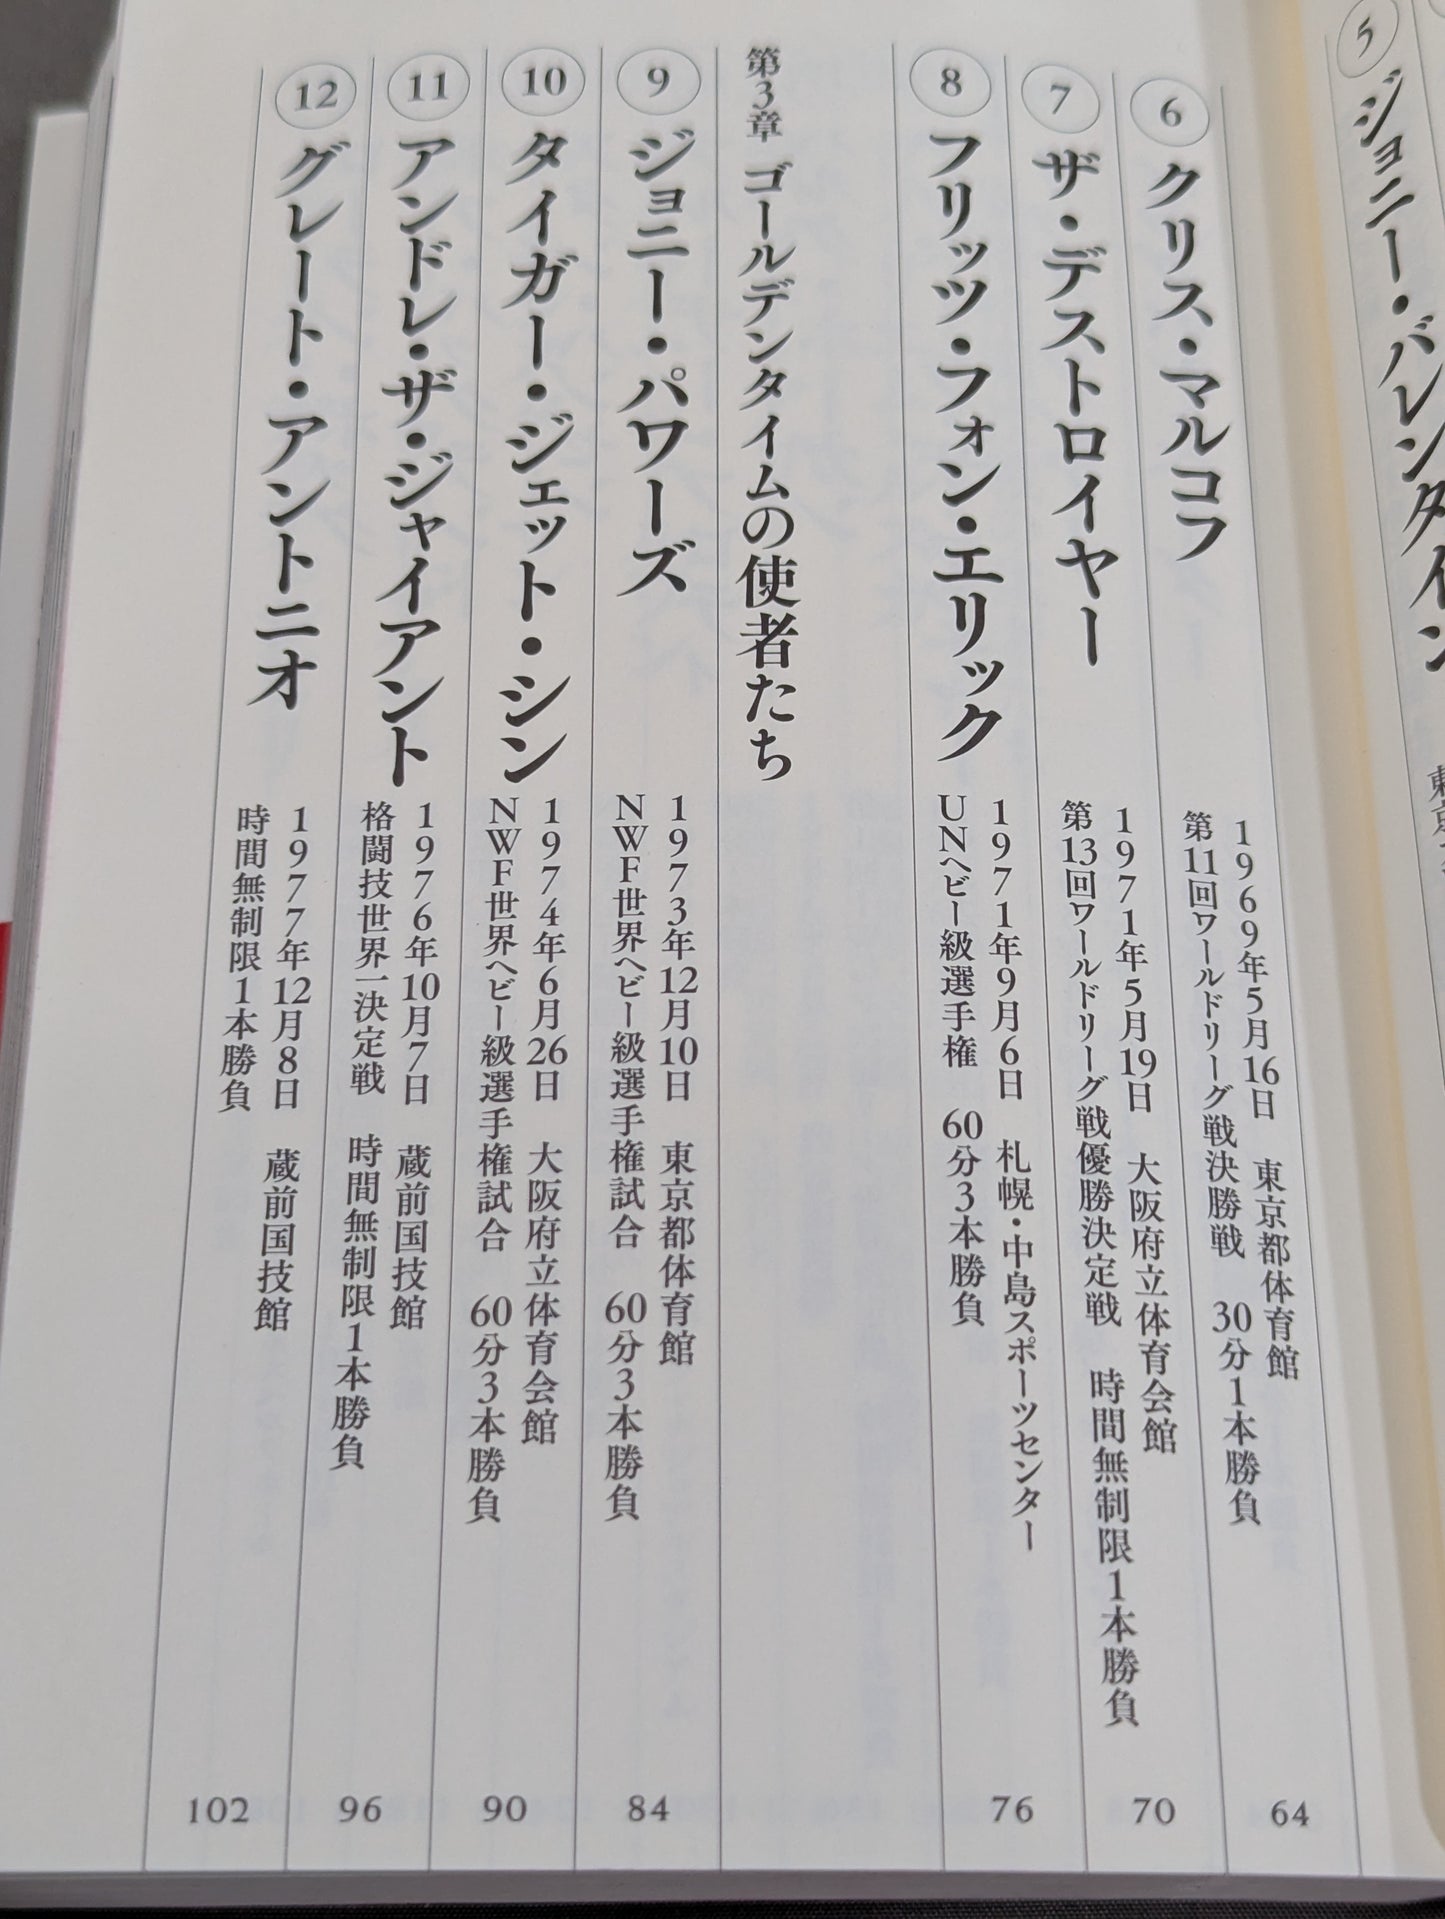 ⑤ ジョニー・バレンタイン
⑥ クリス・マルコフ
1969年5月16日 東京都体育館
第11回ワールドリーグ戦決勝戦 30分1本勝負
64
⑦ ザ・デストロイヤー
1971年5月19日 大阪府立体育会館
第13回ワールドリーグ戦優勝決定戦 時間無制限1本勝負
70
⑧ フリッツ・フォン・エリック
1971年9月6日 札幌・中島スポーツセンター
UNヘビー級選手権 60分3本勝負
76
第3章 ゴールデンタイムの使者たち
⑨ ジョニー・パワーズ
1973年12月10日 東京都体育館
NWF世界ヘビー級選手権試合 60分3本勝負
84
⑩ タイガー・ジェット・シン
1974年6月26日 大阪府立体育会館
NWF世界ヘビー級選手権試合 60分3本勝負
90
⑪ アンドレ・ザ・ジャイアント
1976年10月7日 蔵前国技館
格闘技世界一決定戦 時間無制限1本勝負
96
⑫ グレート・アントニオ
1977年12月8日 蔵前国技館
時間無制限1本勝負
102